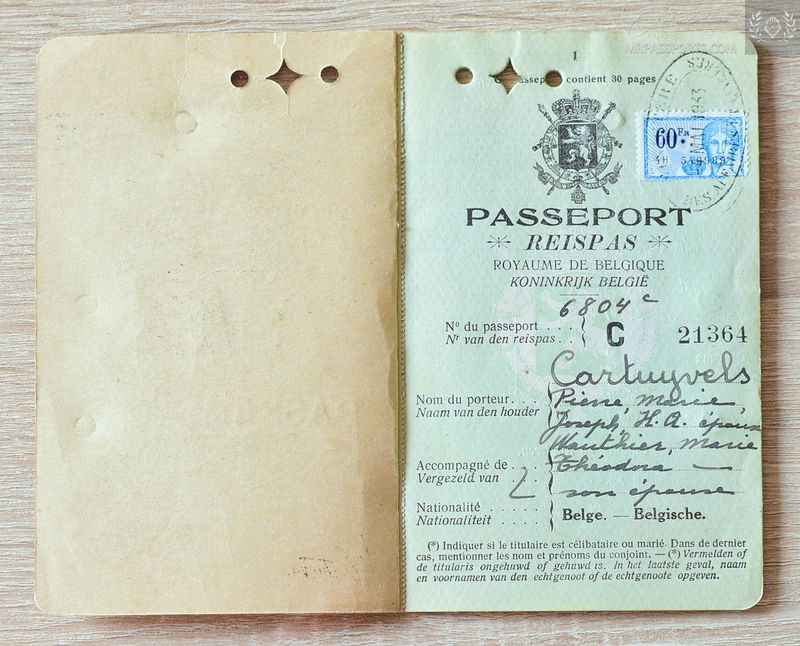 MRPASSPORTS.COM
1
passeport contient 30 pages
60 Fr
MAI 1933
DES AFFAIRES
PASSEPORT
REISPAS
ROYAUME DE BELGIQUE
KONINKRIJK BELGIË
6804 c
No du passeport . . .
Nr van den reispas . .
C 21364
Cartuyvels
Nom du porteur. . . Pierre Marie,
Naam van den houder Joseph, H. A. époux
Wauthier, Marie
Accompagné de . . Théodora —
Vergezeld van 2 son épouse
Nationalité . . . . .
Nationaliteit . . . .
Belge. — Belgische.
(*) Indiquer si le titulaire est célibataire ou marié. Dans de dernier
cas, mentionner les nom et prénoms du conjoint. — (*) Vermelden of
de titularis ongehuwd of gehuwd is. In het laatste geval, naam
en voornamen van den echtgenoot of de echtgenoote opgeven.